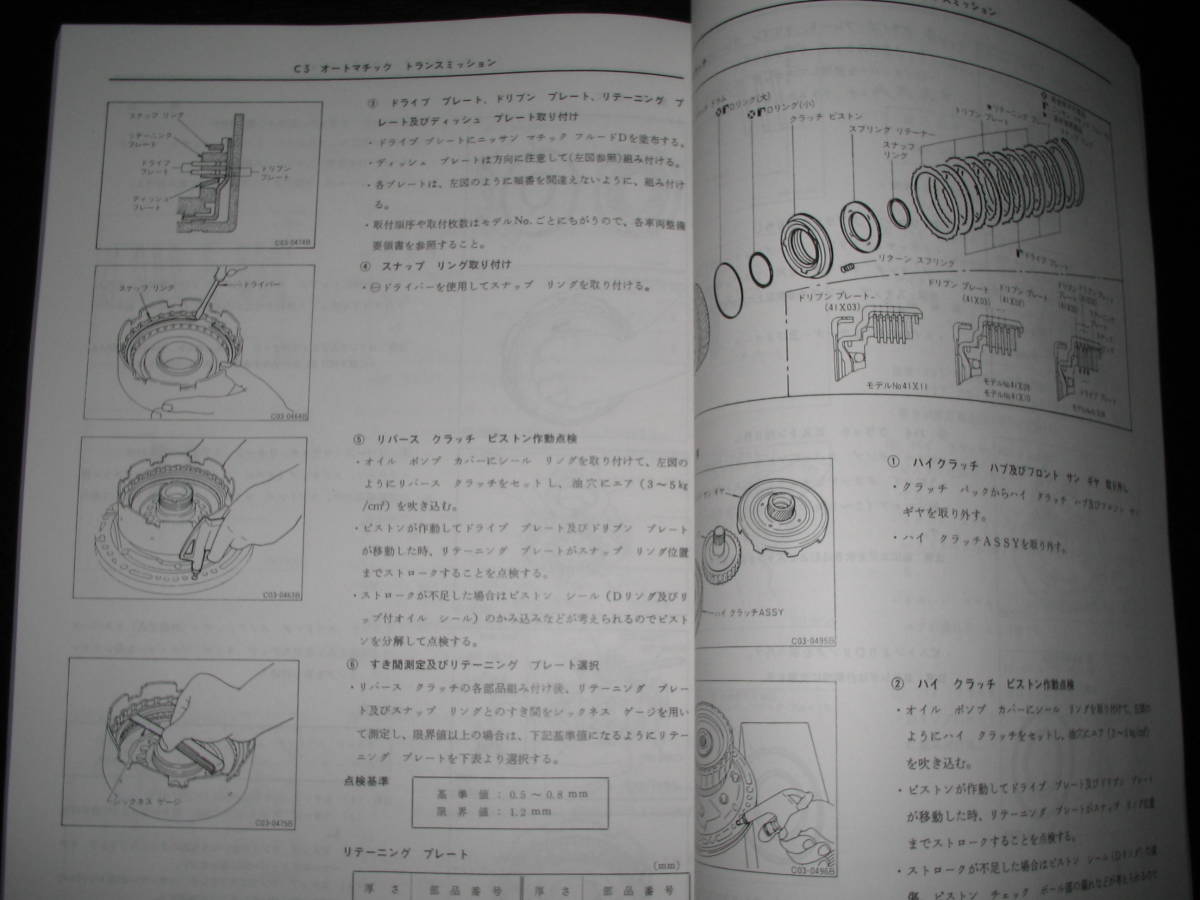 C3 オートマチック トランスミッション
スナップ リング
リテーニング
プレート
ドライブ
プレート
ドリブン
プレート
ディッシュ
プレート
C03-0474B
③ ドライブ プレート、ドリブン プレート、リテーニング プ
レート及びディッシュ プレート取り付け
・ドライブ プレートにニッサン マチック フルードDを塗布する。
・ディッシュ プレートは方向に注意して(左図参照)組み付ける。
・各プレートは、左図のように順番を間違えないように、組み付け
る。
・取付順序や取付枚数はモデルNo.ごとにちがうので、各車両整備
要領書を参照すること。
④ スナップ リング取り付け
・⊖ドライバーを使用してスナップ リングを取り付ける。
スナップ リング
ドライバー
C03-0464B
⑤ リバース クラッチ ピストン作動点検
・オイル ポンプ カバーにシール リングを取り付けて、左図の
ようにリバース クラッチをセットし、油穴にエア(3～5kg
/cm²)を吹き込む。
・ピストンが作動してドライブ プレート及びドリブン プレート
が移動した時、リテーニング プレートがスナップ リング位置
までストロークすることを点検する。
・ストロークが不足した場合はピストン シール(Dリング及びリ
ップ付オイル シール)のかみ込みなどが考えられるのでピスト
ンを分解して点検する。
C03-0463B
⑥ すき間測定及びリテーニング プレート選択
・リバース クラッチの各部品組み付け後、リテーニング プレー
ト及びスナップ リングとのすき間をシックネス ゲージを用い
て測定し、限界値以上の場合は、下記基準値になるようにリテー
ニング プレートを下表より選択する。
シックネス ゲージ
C03-0475B
点検基準
基 準 値 : 0.5～0.8mm
限 界 値 : 1.2mm
リテーニング プレート
(mm)
厚 さ 部 品 番 号 厚 さ 部 品 番 号
ミッション
ドラム
Dリング(大)
Dリング(小)
クラッチ ピストン
スプリング リテーナー
スナップ
リング
ドリブン プレート
★リテーニング プレート
リターン スプリング
ドライブ プレート
ドリブン プレート
(41X03)
モデルNo41X11
ドリブン プレート
(41X03)
ドリブン プレート
モデルNo41X09
モデルNo41X10
ドライブ プレート
サン ギヤ
ハイ クラッチASSY
C03-0495B
① ハイクラッチ ハブ及びフロント サン ギヤ 取り外し
・クラッチ パックからハイ クラッチ ハブ及びフロント サン
ギヤを取り外す。
・ハイ クラッチASSYを取り外す。
② ハイ クラッチ ピストン作動点検
・オイル ポンプ カバーにシール リングを取り付けて、左図の
ようにハイ クラッチをセットし、油穴にエア(3～5kg/cm²)
を吹き込む。
・ピストンが作動してドライブ プレート及びドリブン プレート
が移動した時、リテーニング プレートがスナップ リング位置
までストロークすることを点検する。
・ストロークが不足した場合はピストン シール(Dリング)の損
傷、ピストン チェック ボール部の漏れなどが考えられるので
C03-0496B